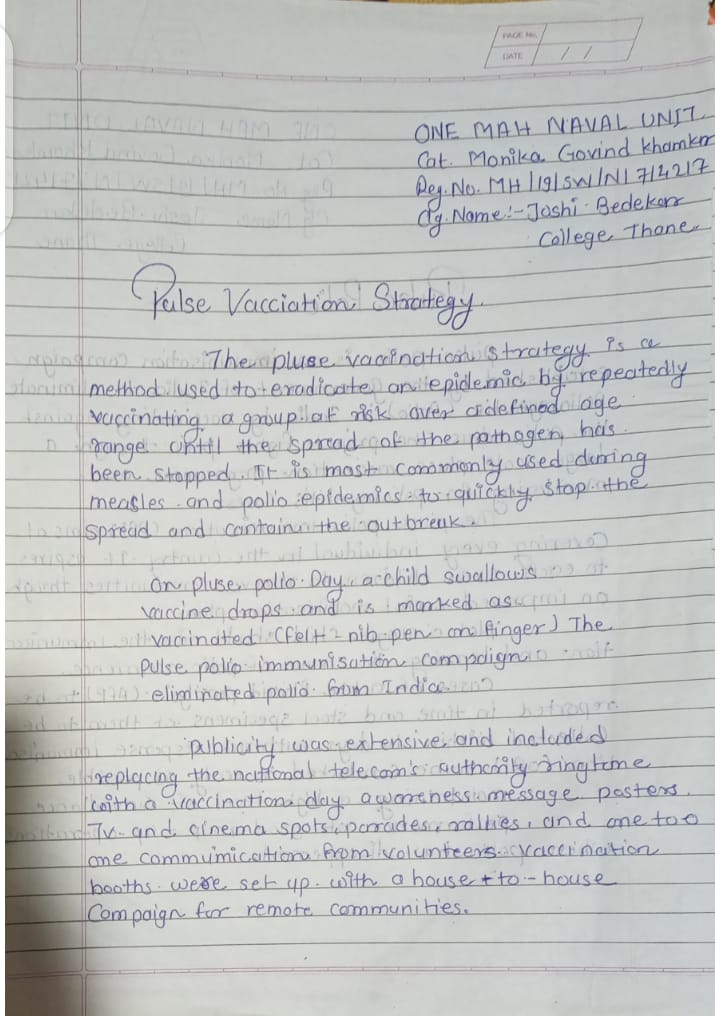 PAGE No.
DATE / /
ONE MAH NAVAL UNIT.
Cat. Monika Govind Khamkar
Reg. No. MH/19/SW/N/714217
Clg. Name:- Joshi Bedekar
College, Thane
Pulse Vacciation Strategy.
The pluse vaccination strategy is a
method used to eradicate an epidemic by repeatedly
vaccinating a group at risk over a defined age
range until the spread of the pathogen has
been stopped. It is most commonly used during
measles and polio epidemics to quickly stop the
spread and contain the outbreak.
On pluse polio Day a child swallows
vaccine drops and is marked as
vaccinated (felt-nib pen on finger) The
pulse polio immunisation compaign
eliminated polio from Indica.
publicity was extensive and included
replacing the national telecom's authority ringtome
with a vaccination day awareness message posters.
Tv and cinema spots, parades, rallies, and one too
one communication from volunteers. vaccination
booths were set up. with a house-to-house
Compaign for remote communities.